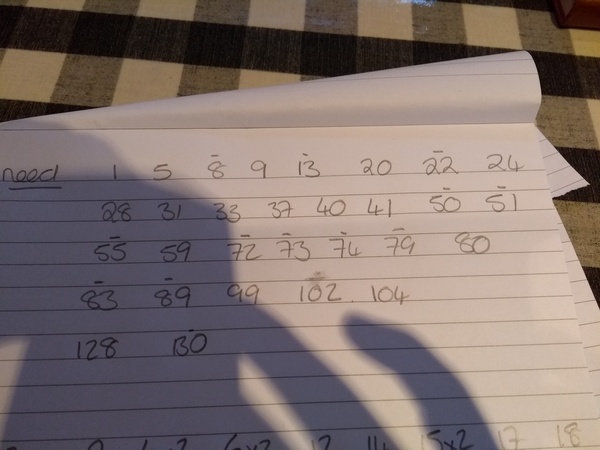 need 1 5 8 9 13 20 22 24
28 31 33 37 40 41 50 51
55 59 72 73 74 79 80
83 89 99 102 104
128 130
12 14 15x2 17 18